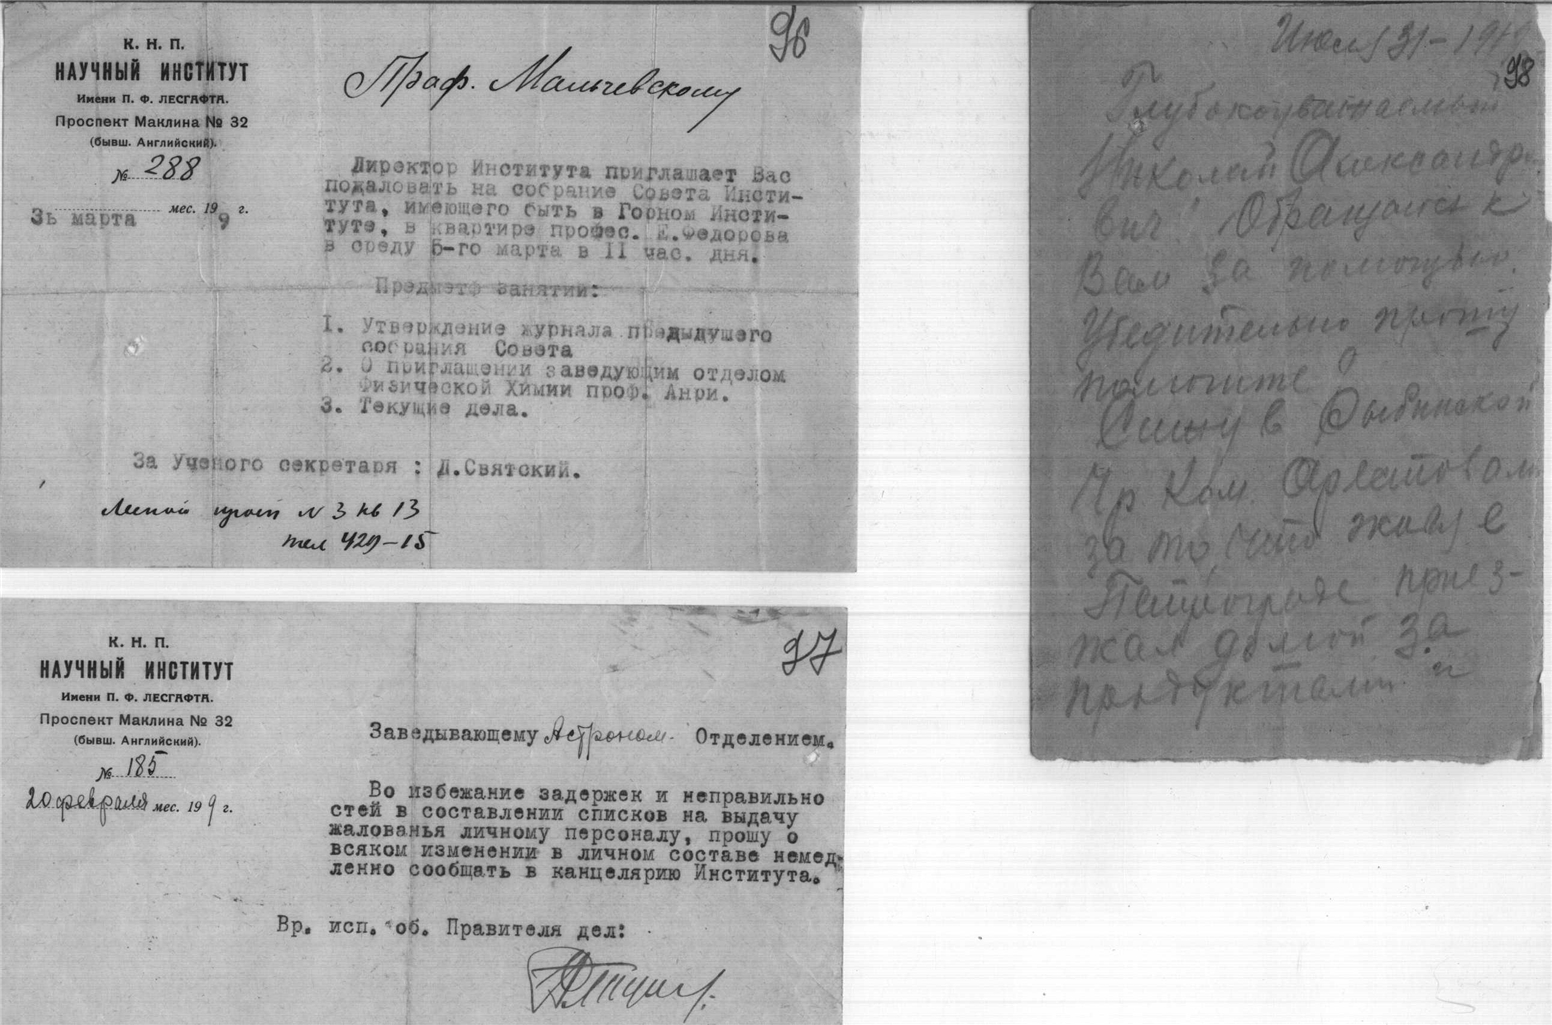 96
К. Н. П.
НАУЧНЫЙ ИНСТИТУТ
Имени П. Ф. ЛЕСГАФТА.
Проспект Маклина № 32
(бывш. Английский).
№ 288
3ь марта мес. 199 г.
Праф. Мальчевскому
Директор Института приглашает Вас
пожаловать на собрание Совета Инсти-
тута, имеющего быть в Горном Инсти-
туте, в квартире профес. Е.Федорова
в среду 5-го марта в II час. дня.
Предметы занятий:
1. Утверждение журнала предыдущего
собрания Совета
2. О приглашении заведующим отделом
Физической Химии проф. Анри.
3. Текущие дела.
За Ученого секретаря : Д.Святский.
Лесной N 3 кв 13
тел 429-15
97
К. Н. П.
НАУЧНЫЙ ИНСТИТУТ
Имени П. Ф. ЛЕСГАФТА.
Проспект Маклина № 32
(бывш. Английский).
№ 185
20 февраля мес. 199 г.
Заведывающему Астроном. Отделением.
Во избежание задержек и неправильно
стей в составлении списков на выдачу
жалованья личному персоналу, прошу о
всяком изменении в личном составе немед-
ленно сообщать в канцелярию Института.
Вр. исп. об. Правителя дел:
Июля 31-191
98
Глубокоуважаемый
Николай Александро-
вич! Обращаюсь к
Вам за помощью.
Убедительно прошу
помогите
Сижу в Рыбинской
Чр Ком. Арестовали
за то, что живя в
Петрограде приез-
жал домой за
продуктами и